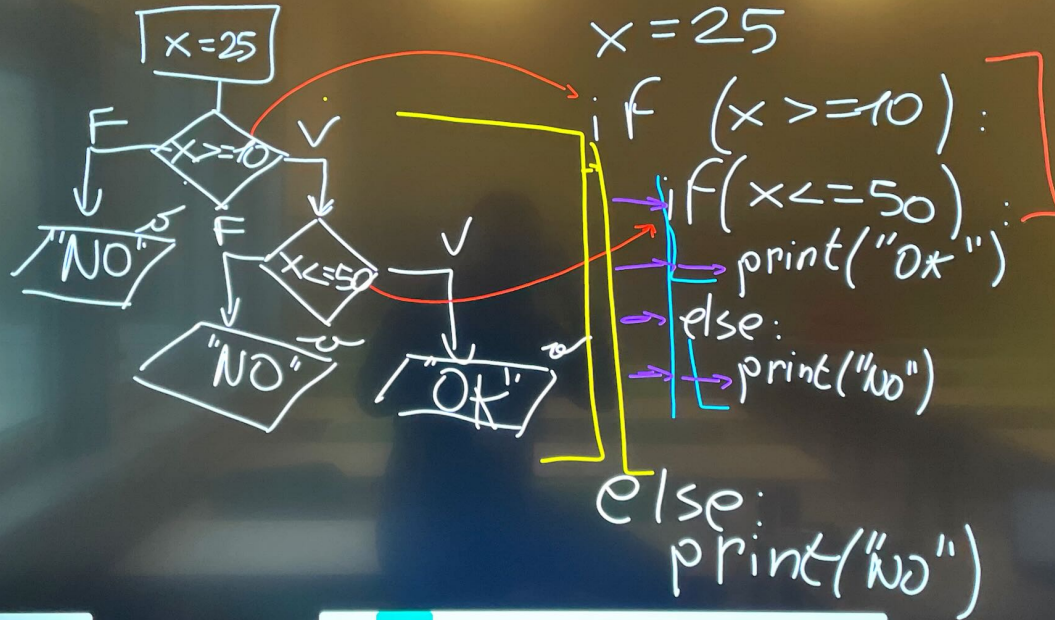 x=25
F
x>=10
V
"NO"
F
x<=50
V
"NO"
"OK"
x=25
if (x>=10):
if(x<=50):
print("OK")
else:
print("NO")
else:
print("NO")